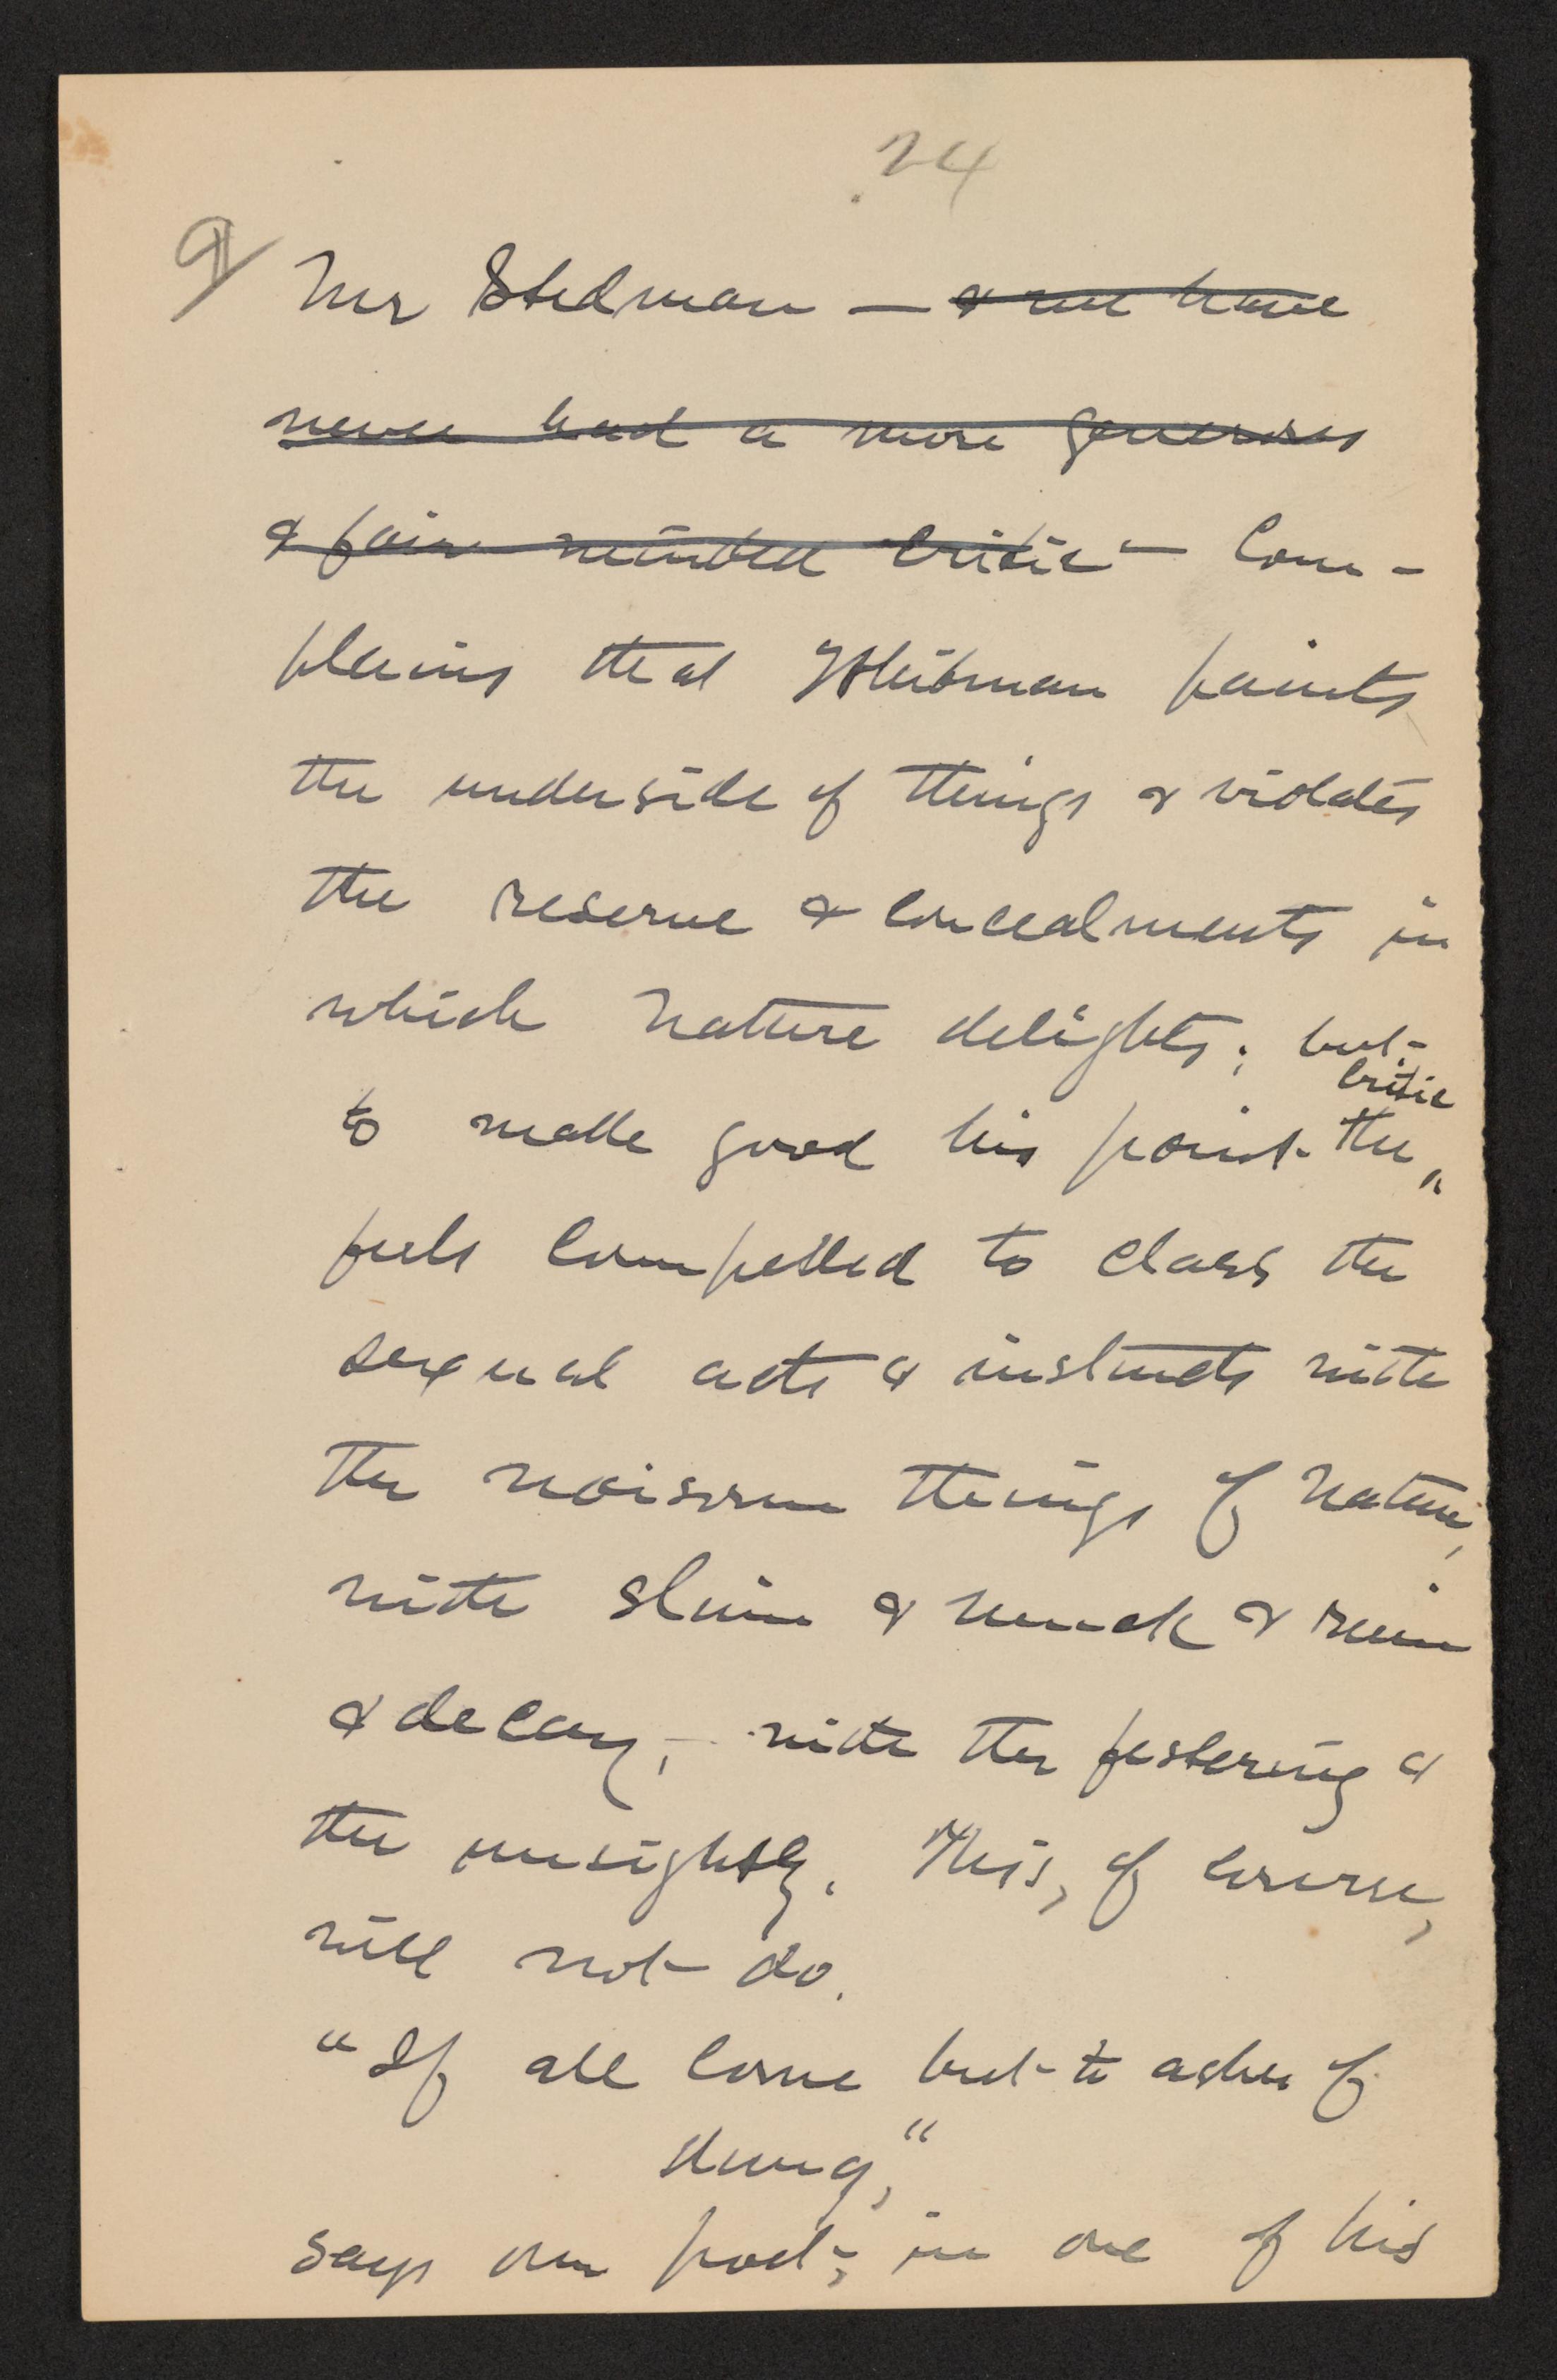 24
¶ Mr Stedman — & we have
never had a more generous
& fair minded critic — Com-
plains that Whitman paints
the underside of things & violates
the reserve & concealments in
which Nature delights; but
critic
to make good his point the ^
feels compelled to class the
sexual acts & instincts with
the noisome things of Nature,
with slime & muck & ruin
& decay, — with the festering &
the unsightly. This, of course,
will not do.
"If all came but to ashes of
dung,"
says our poet, in one of his